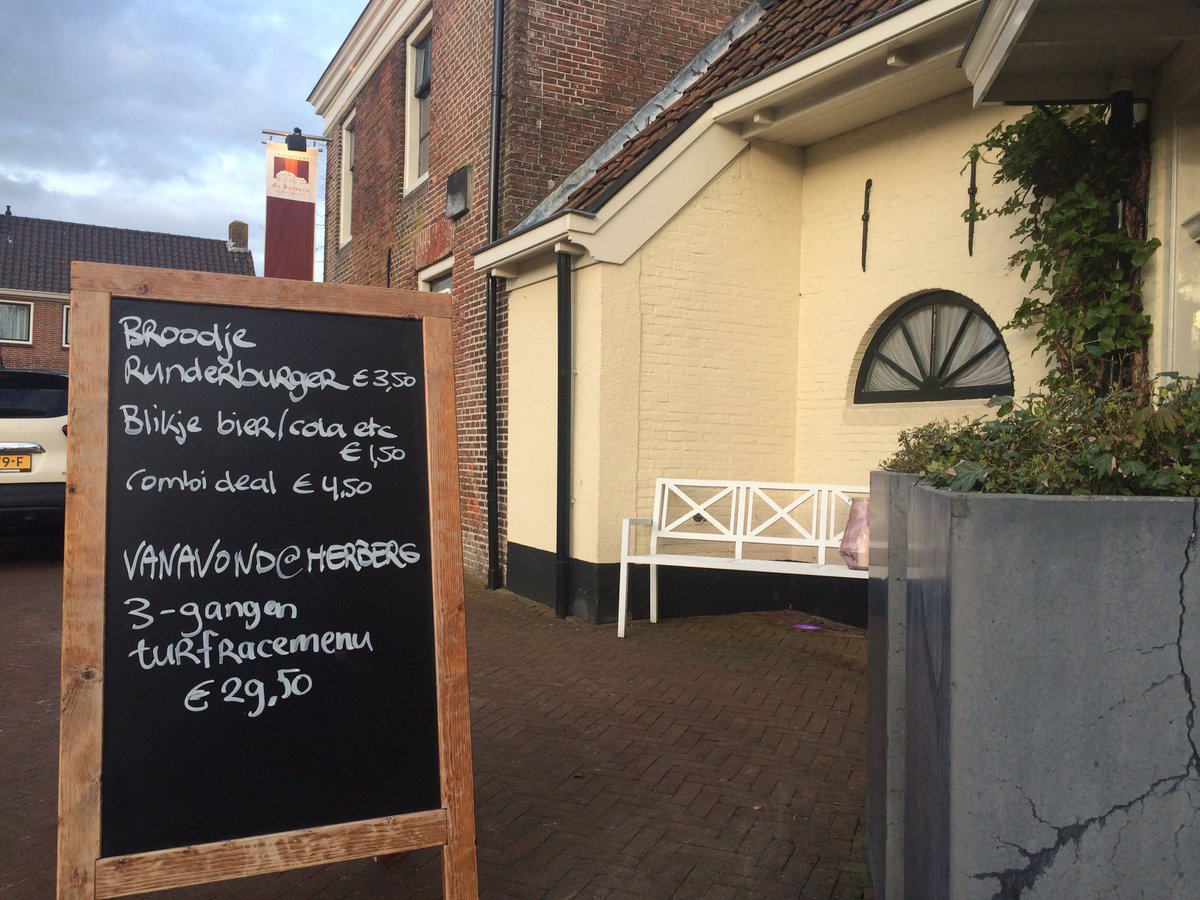 BRoodje
RundeRbuRgeR € 3,50
Blikje bier/cola etc
€ 1,50
combi deal € 4,50
VANAVOND@HERBERG
3-gangen
turfracemenu
€ 29,50
9-F